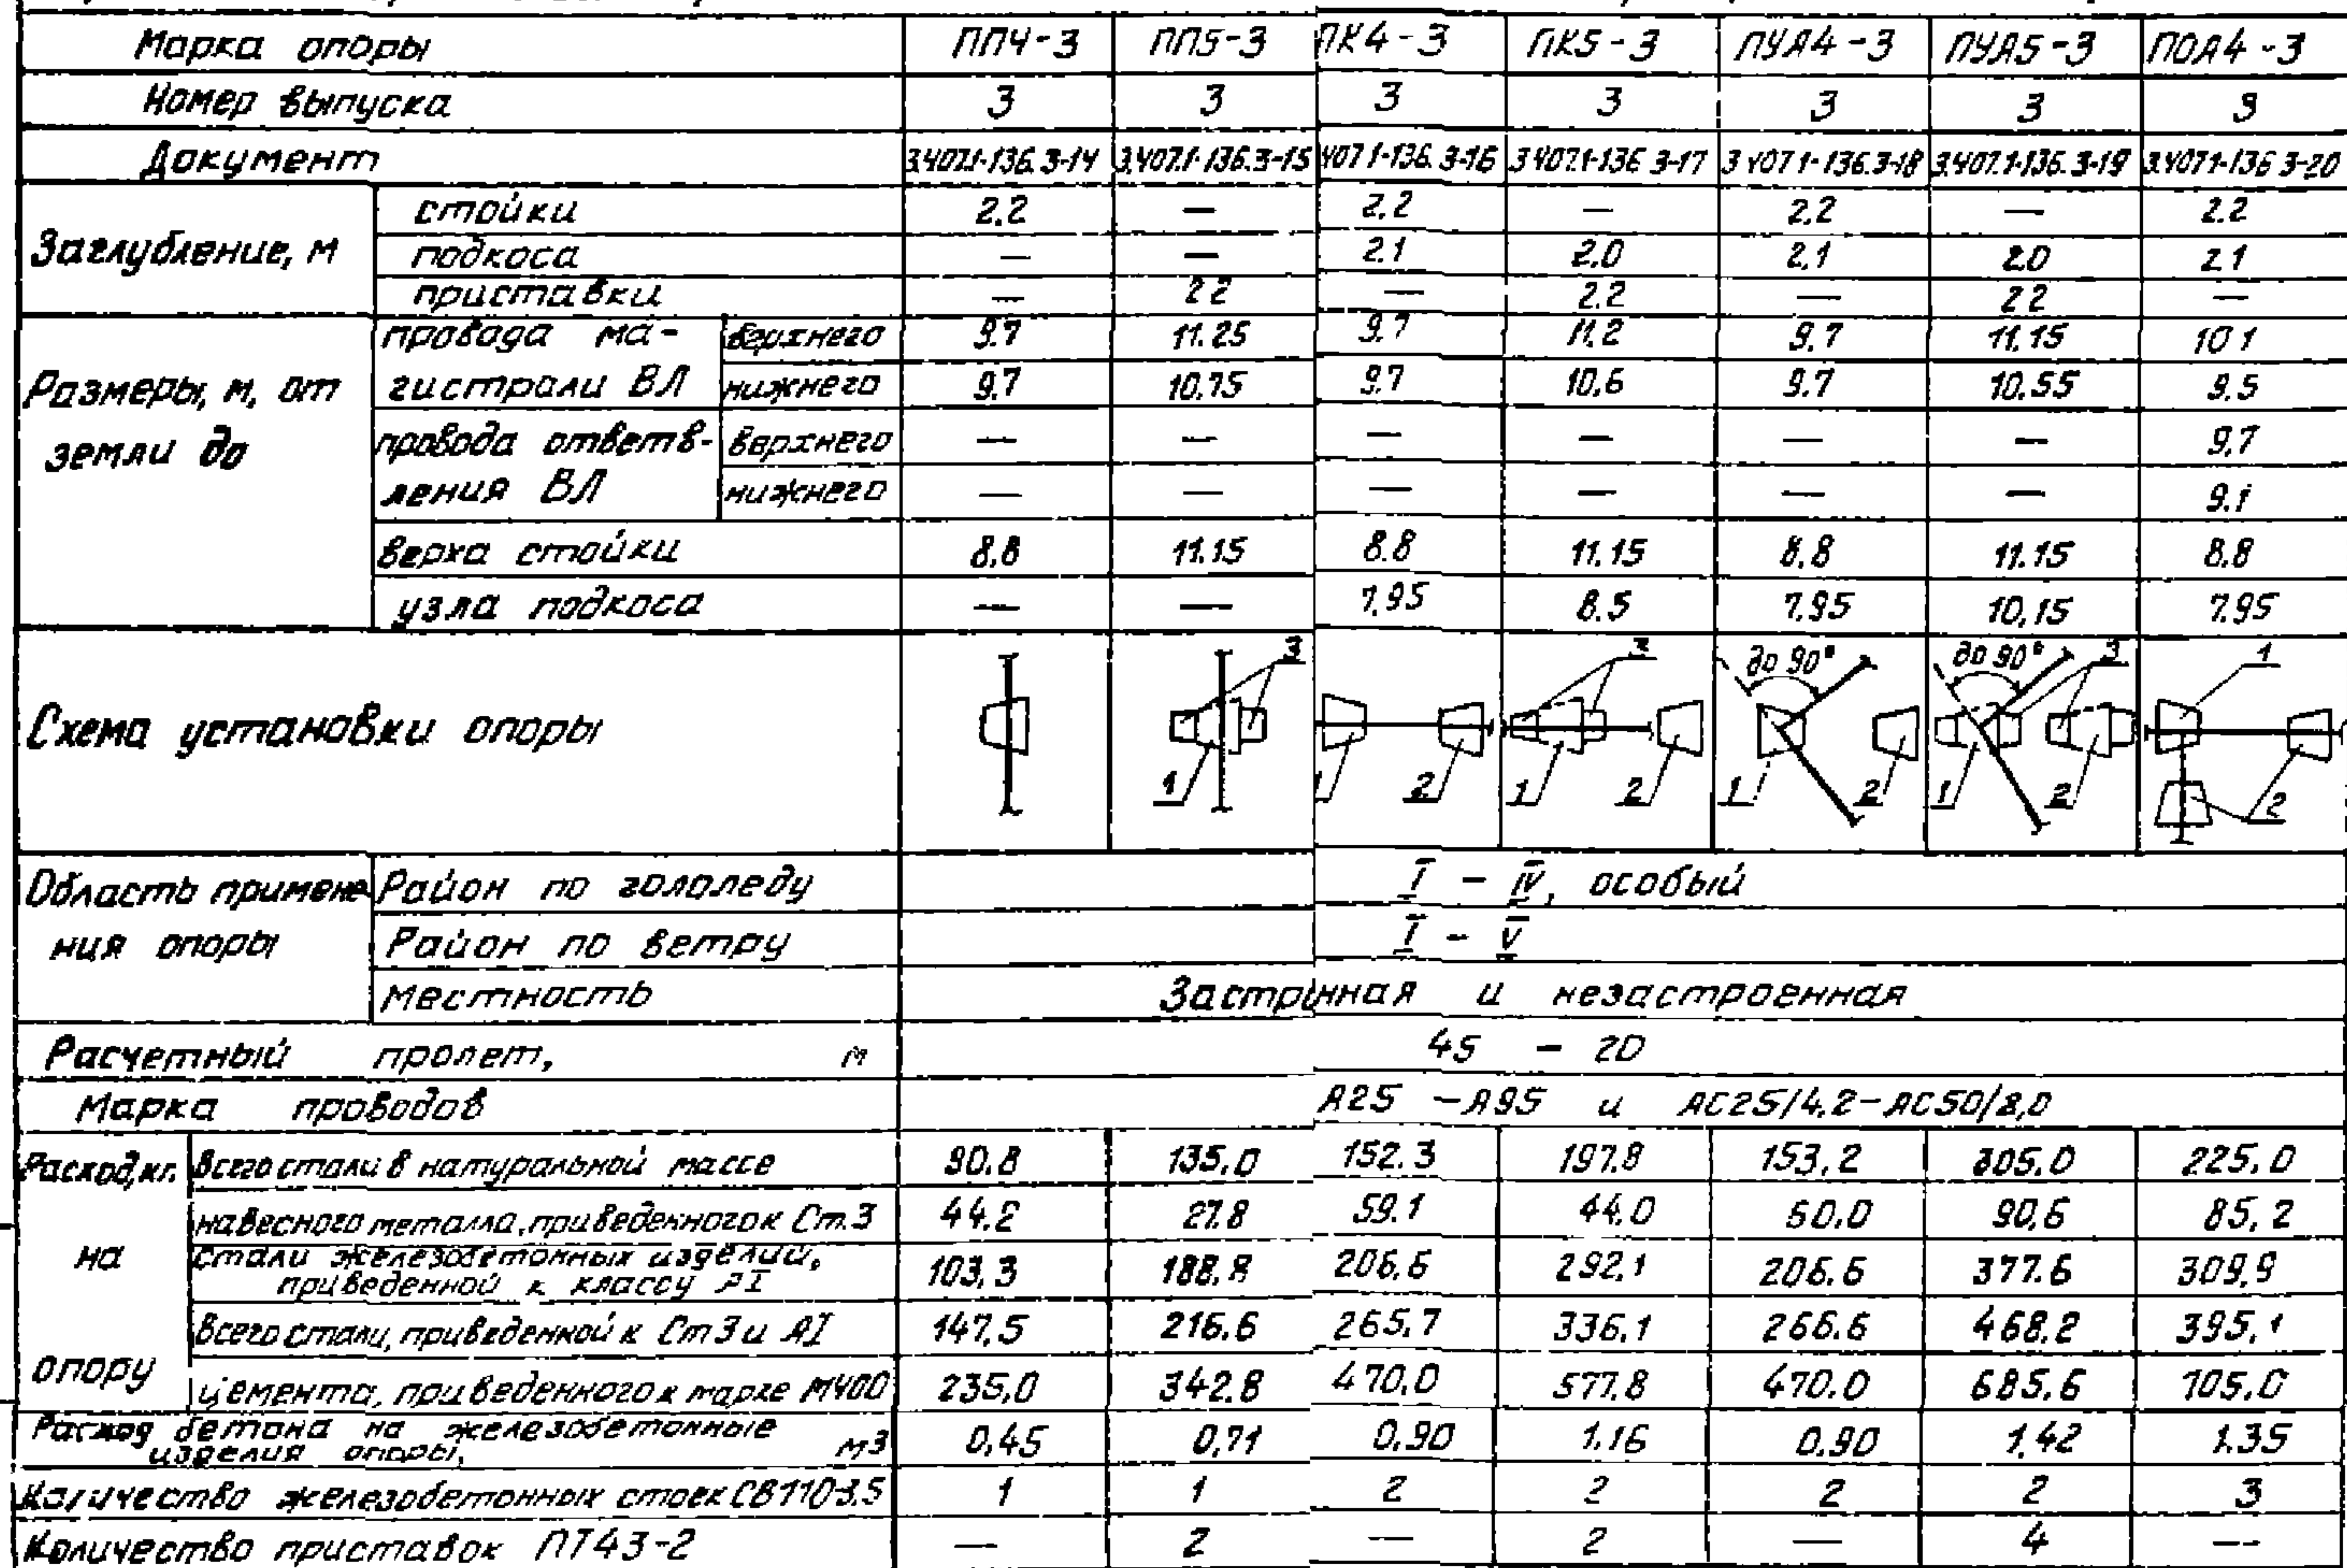 Марка опоры ПП4-3 ПП5-3 ПК4-3 ПК5-3 ПУА4-3 ПУА5-3 ПОА4-3
Номер выпуска 3 3 3 3 3 3 3
Документ 3.407.1-136.3-14 3.407.1-136.3-15 407.1-136.3-16 3.407.1-136 3-17 3 407 1-136.3-18 3.407.1-136.3-19 3.407.1-136 3-20
Заглубление, м
стойки 2.2 — 2.2 — 2.2 — 2.2
подкоса — — 2.1 2.0 2.1 2.0 2.1
приставки — 2 2 — 2.2 — 2 2 —
Размеры, м, от
земли до
провода ма-
гистрали ВЛ
верхнего 9.7 11.25 9.7 11.2 9.7 11.15 10 1
нижнего 9.7 10.75 9.7 10,6 9.7 10.55 9.5
провода ответв-
ления ВЛ
верхнего — — — — — — 9,7
нижнего — — — — — — 9.1
верха стойки 8.8 11.15 8.8 11.15 8.8 11.15 8.8
узла подкоса — — 7.95 8.5 7.95 10,15 7.95
Схема установки опоры
3
1
1 2
3
1 2
до 90°
1 2
до 90° 3
1 2
1
2
Область примене
ния опоры
Район по гололеду I - IV, особый
Район по ветру I - V
Местность Застр нная и незастроенная
Расчетный пролет, м 45 - 20
Марка проводов А25 - А95 и АС25/4.2-АС50/8,0
Расход, кг.
на
опору
Всего стали в натуральной массе 90.8 135.0 152.3 197.8 153,2 305.0 225.0
навесного металла, приведенного к Ст.3 44.2 27.8 59.1 44.0 60.0 90,6 85,2
стали железобетонных изделий,
приведенной к классу АI 103,3 188.8 206.6 292,1 206.6 377.6 309,9
Всего стали, приведенной к Ст 3 и АI 147,5 216.6 265,7 336,1 266.6 468.2 395,1
цемента, приведенного к марке М400 235,0 342.8 470,0 577.8 470.0 685.6 705,0
Расход бетона на железобетонные
изделия опоры, м3 0,45 0,71 0.90 1.16 0.90 1,42 1.35
Количество железобетонных стоек СВ110-3.5 1 1 2 2 2 2 3
Количество приставок ПТ43-2 — 2 — 2 — 4 —